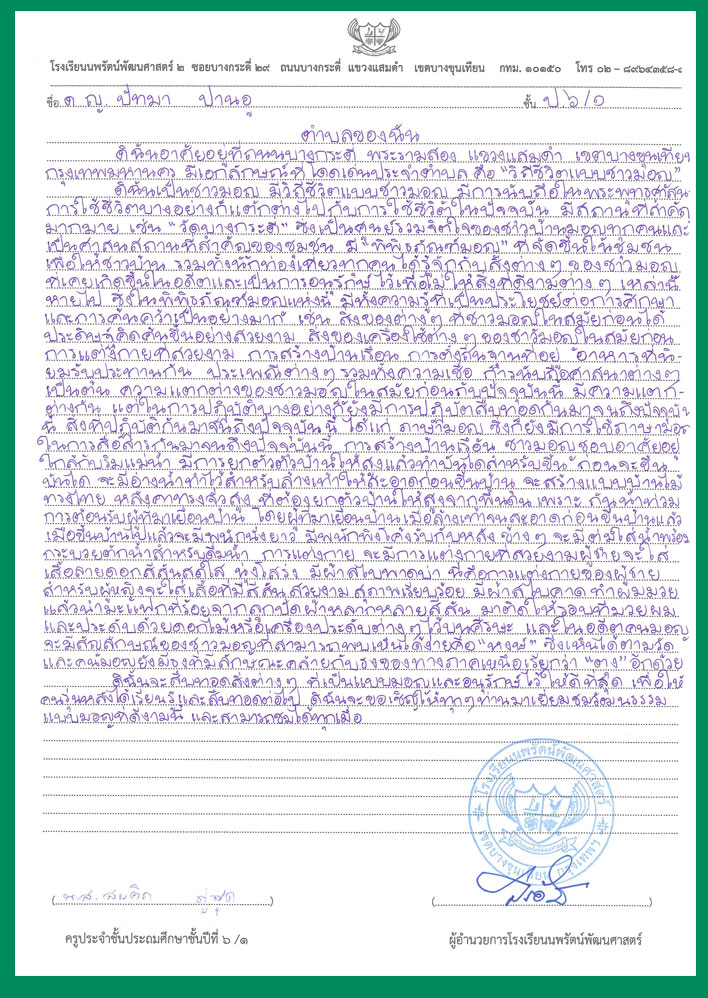 โรงเรียนนพรัตน์พัฒนศาสตร์ ๒ ซอยบางกระดี่ ๒๙ ถนนบางกระดี่ แขวงแสมดำ เขตบางขุนเทียน กทม. ๑๐๑๕๐ โทร ๐๒ – ๘๙๖๔๓๕๘-๙
ชื่อ ด ญ. ปัทมา ปานอู ชั้น ป.๖/๑
ตำบลของฉัน
ดิฉันอาศัยอยู่ที่ถนนบางกระดี่ พระรามสอง แขวงแสมดำ เขตบางขุนเทียน
กรุงเทพมหานคร มีเอกลักษณ์ที่โดดเด่นประจำตำบล คือ "วิถีชีวิตแบบชาวมอญ"
ดิฉันเป็นชาวมอญ มีวิถีชีวิตแบบชาวมอญ มีการนับถือในพระพุทธศาสนา
การใช้ชีวิตบางอย่างก็แตกต่างไปกับการใช้ชีวิตในปัจจุบัน มีสถานที่สำคัญ
มากมาย เช่น "วัดบางกระดี่" ซึ่งเป็นศูนย์รวมจิตใจของชาวบ้านมอญทุกคนและ
เป็นศาสนสถานที่สำคัญของชุมชน มี "พิพิธภัณฑ์มอญ" ที่จัดขึ้นให้ชุมชน
เพื่อให้ชาวบ้าน รวมทั้งนักท่องเที่ยวทุกคนได้รู้จักกับสิ่งต่างๆ ของชาวมอญ
ที่เคยเกิดขึ้นในอดีตและเป็นการอนุรักษ์ไว้เพื่อไม่ให้สิ่งที่ดีงามต่างๆ เหล่านี้
หายไป ซึ่งในพิพิธภัณฑ์มอญแห่งนี้ มีทั้งความรู้ที่เป็นประโยชน์ต่อการศึกษา
และการค้นคว้าเป็นอย่างมาก เช่น สิ่งของต่างๆ ที่ชาวมอญในสมัยก่อนได้
ประดิษฐ์คิดค้นขึ้นอย่างสวยงาม สิ่งของเครื่องใช้ต่างๆ ของชาวมอญในสมัยก่อน
การแต่งกายที่สวยงาม การสร้างบ้านเรือน การตั้งถิ่นฐานที่อยู่ อาหารที่นิ-
ยมรับประทานกัน ประเพณีต่างๆ รวมทั้งความเชื่อ การนับถือศาสนาต่างๆ
เป็นต้น ความแตกต่างของชาวมอญในสมัยก่อนกับปัจจุบันนี้ มีความแตก-
ต่างกัน แต่ในการปฏิบัติบางอย่างก็ยังมีการปฏิบัติสืบทอดกันมาจนถึงปัจจุบัน
นี้ สิ่งที่ปฏิบัติกันมาจนถึงปัจจุบันนี้ ได้แก่ ภาษามอญ ซึ่งก็ยังมีการใช้ภาษามอญ
ในการสื่อสารกันมาจนถึงปัจจุบันนี้ การสร้างบ้านเรือน ชาวมอญชอบอาศัยอยู่
ใกล้กับริมแม่น้ำ มีการยกตัวตัวบ้านให้สูงแล้วทำบันไดสำหรับขึ้น ก่อนจะขึ้น
บันได จะมีอ่างน้ำทำไว้สำหรับล้างเท้าให้สะอาดก่อนขึ้นบ้าน จะสร้างแบบบ้านไม้
ทรงไทย หลังคาทรงจั่วสูง ที่ต้องยกตัวบ้านให้สูงจากพื้นดิน เพราะ กันน้ำท่วม
การต้อนรับผู้ที่มาเยือนบ้าน โดยผู้ที่มาเยือนบ้านเมื่อล้างเท้าจนสะอาดก่อนขึ้นบ้านแล้ว
เมื่อขึ้นบ้านไปแล้วจะมีพนักนั่งยาว มีพนักพิงโค้งรับกับหลัง ข้างๆ จะมีตุ่มใส่น้ำพร้อม
กระบวยตักน้ำสำหรับดื่มน้ำ การแต่งกาย จะมีการแต่งกายที่สวยงามผู้ชายจะใส่
เสื้อลายดอกสีสันสดใส นุ่งโสร่ง มีผ้าสไบพาดบ่า นี่คือการแต่งกายของผู้ชาย
สำหรับผู้หญิงจะใส่เสื้อที่มีสีสันสวยงาม สุภาพเรียบร้อย มีผ้าสไบคาด ทำผมมวย
แล้วนำมะแฟกที่ร้อยจากลูกปัดผ้าหลากหลายสีสัน มาติดให้รอบที่มวยผม
และประดับด้วยดอกไม้หรือเครื่องประดับต่างๆ ไว้บนศีรษะ และในอดีตคนมอญ
จะมีสัญลักษณ์ของชาวมอญที่สามารถพบเห็นได้ง่ายคือ "หงษ์" ซึ่งเห็นได้ตามวัด
และคนมอญยังมีธงที่มีลักษณะคล้ายกับธงของทางภาคเหนือเรียกว่า "ตุง" อีกด้วย
ดิฉันจะสืบทอดสิ่งต่างๆ ที่เป็นแบบมอญและอนุรักษ์ไว้ให้ดีที่สุด เพื่อให้
คนรุ่นหลังได้เรียนรู้ และสืบทอดต่อไป ดิฉันจะขอเชิญให้ทุกๆ ท่านมาเยี่ยมชมวัฒนธรรม
แบบมอญที่ดีงามนี้ และสามารถชมได้ทุกเมื่อ
โรงเรียนนพรัตน์พัฒนศาสตร์
เขตบางขุนเทียน กรุงเทพฯ
( น.ส. สมคิด ) ( )
ครูประจำชั้นประถมศึกษาชั้นปีที่ ๖ /๑ ผู้อำนวยการโรงเรียนนพรัตน์พัฒนศาสตร์